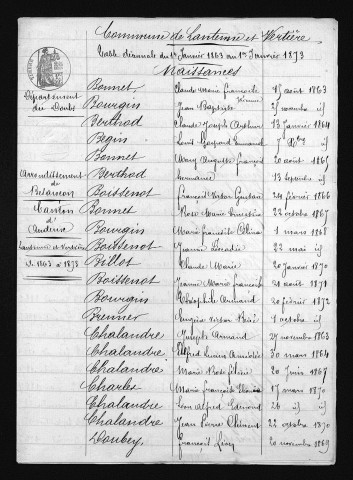 Commune de Lantenne et Vertière
Table décennale du 1er Janvier 1863 au 1er Janvier 1873
Naissances
Département
du Doubs
Arrondissement
de
Besançon
Canton
d'
Audeux
Lantenne et Vertière
De 1863 à 1873
Bonnet Claude Marie Francoise 15 août 1863
Bourgin Jean Baptiste 25 novembre id
Berthod Claude Joseph Arthur 13 Janvier 1864
Begin Louis Emmanuel 7 id
Bonnet Auguste françois 20 août 1865
Berthod Hermance 13 septembre id
Boissenot françois Victor Gustave 24 février 1866
Bonnet Rose Marie Ernestine 22 octobre 1867
Bourgin Marie françoise Célina 1 mars 1868
Boissenot Jeanne Léocadie 22 mai id
Billot Claude Marie 20 janvier 1870
Boissenot Jeanne Marie 21 août 1871
Bourgin Théophile Armand 20 février 1872
Brenner Eugène Victor 1 octobre id
Chalandre Joseph Armand 27 novembre 1863
Chalandre Alfred Lucien 30 mars 1864
Chalandre Marie Rose 20 Juin 1867
Charles Marie françoise 17 mars 1870
Chalandre Léon Alfred Edmond 26 id id
Chalandre Jean Pierre Clément 22 octobre 1870
Doubey françois Léon 20 novembre 1869